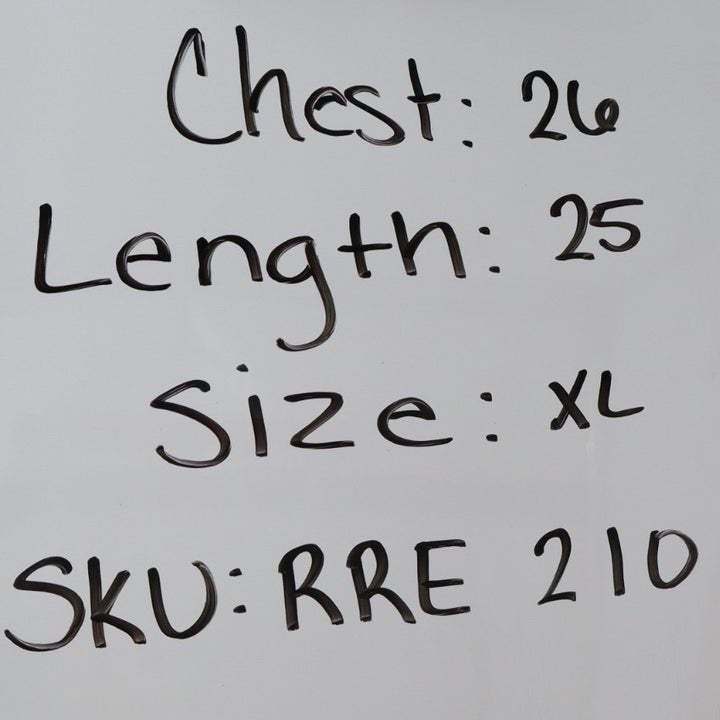 Chest: 26
Length: 25
Size: XL
SKU: RRE 210